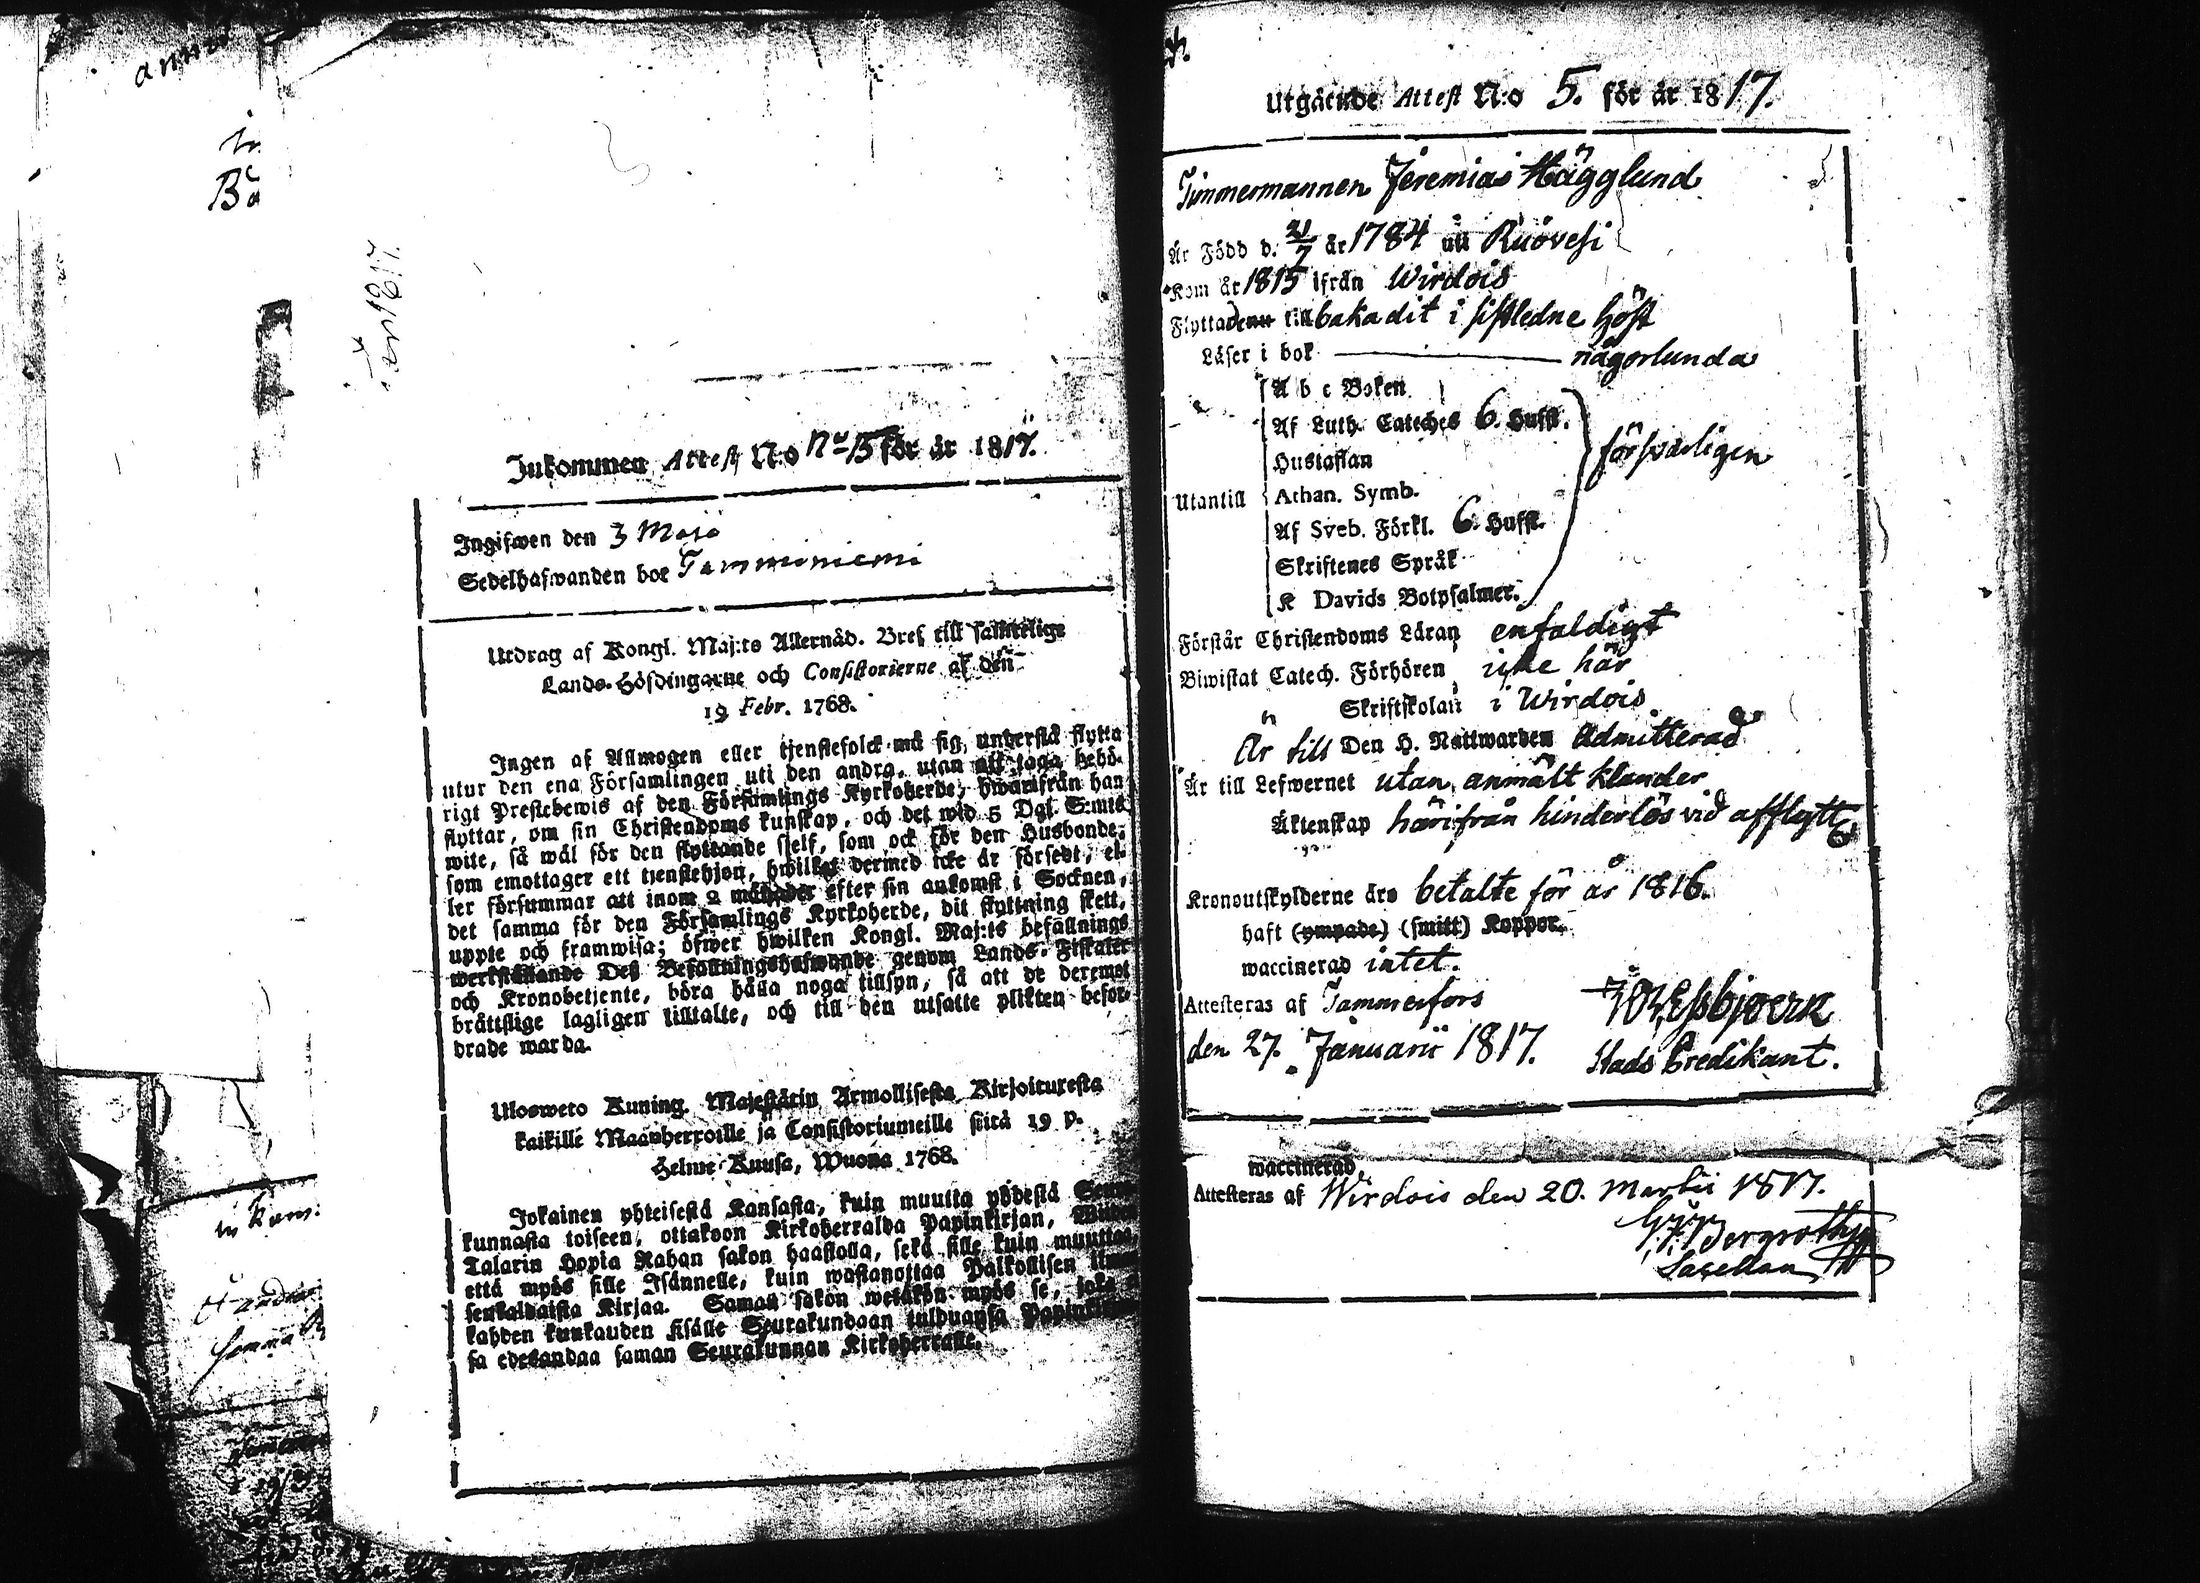 Inkommen Attest N:o No 15 för år 1817.
Ingifwen den 3 Maji
Sedelhafwanden bor Tamminiemi
Utdrag af Kongl. Maj:ts Allernåd. Bref till samtelige
Lands-Höfdingarne och Consistorierne af den
19 Febr. 1768.
Ingen af Allmogen eller tjenstefolck må sig understå flytta
utur den ena Församlingen uti den andra, utan att taga behö-
rigt Prestebewis af den Församlings Kyrkoherde, hwarifrån han
flyttar, om sin Christendoms kunskap, och det wid 5 Dal. S:mts
wite, så wäl för den flyttande sjelf, som ock för den Husbonde,
som emottager ett tjenstehjon, hwilket dermed icke är försedt, el-
ler försummar att inom 2 månader efter sin ankomst i Socknen,
det samma för den Församlings Kyrkoherde, dit flyttning skett,
uppte och framwisa; öfwer hwilken Kongl. Maj:ts befallnings
werkställande Deß Befallningshafwande genom Lands-Fiskaler
och Kronobetjente, böra hålla noga tillsyn, så att de deremot
bråttslige lagligen tilltalte, och till den utsatte plikten befor-
drade warda.
Ulosweto Kuning. Majestätin Armollisesta Kirjoituxesta
kaikille Maanherroille ja Consistoriumeille siitä 19 p.
Helme-Kuusa, Wuona 1768.
Jokainen yhteisestä Kansasta, kuin muutta yhdestä Seura-
kunnasta toiseen, ottakoon Kirkoherralda Papinkirjan, Wiiden
Talarin Hopia Rahan sakon haastolla, sekä sille kuin muuttaa,
että myös sille Isännelle, kuin wastanottaa Palkollisen ilman
senkaldaista Kirjaa. Saman sakon wetäkön myös se, joka
kahden kuukauden sisälle Seurakundaan tulduansa Papinkirjan-
sa edesandaa saman Seurakunnan Kirkoherralle.
Utgående Attest N:o 5. för år 1817.
Timmermannen Jeremias Hägglund
Är Född d. 21/7 år 1784 uti Ruovesi
Kom år 1815 ifrån Wirdois
Flyttade nu tillbaka dit i sistledne höst
Läser i bok någorlunda
A b c Boken
Af Luth. Cateches 6. Hufst.
Hustaflan
försvarligen
Utantill Athan. Symb.
Af Sveb. Förkl. 6. Hufst.
Skriftenes Språk
K Davids Botpsalmer.
Förstår Christendoms Läran enfaldigt
Biwistat Catech. Förhören icke här
Skriftskolan i Wirdois
Är till Den H. Nattwarden Admitterad
Är till Lefwernet utan anmält klander
Äktenskap härifrån hinderlös vid afflytt
Kronoutskylderne äro betalte för år 1816.
haft (ympade) (smitt) Koppor.
waccinerad intet.
Attesteras af Tammerfors
den 27. Januarii 1817.
Stads Predikant.
waccinerad
Attesteras af Wirdois den 20. Martii 1817.
Bergroth
Sacellan